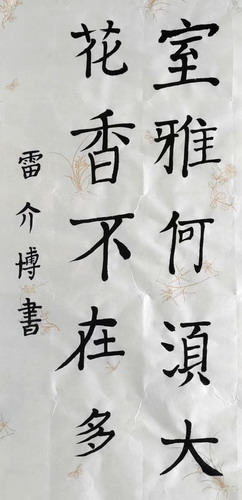 室雅何須大
花香不在多
雷介博書